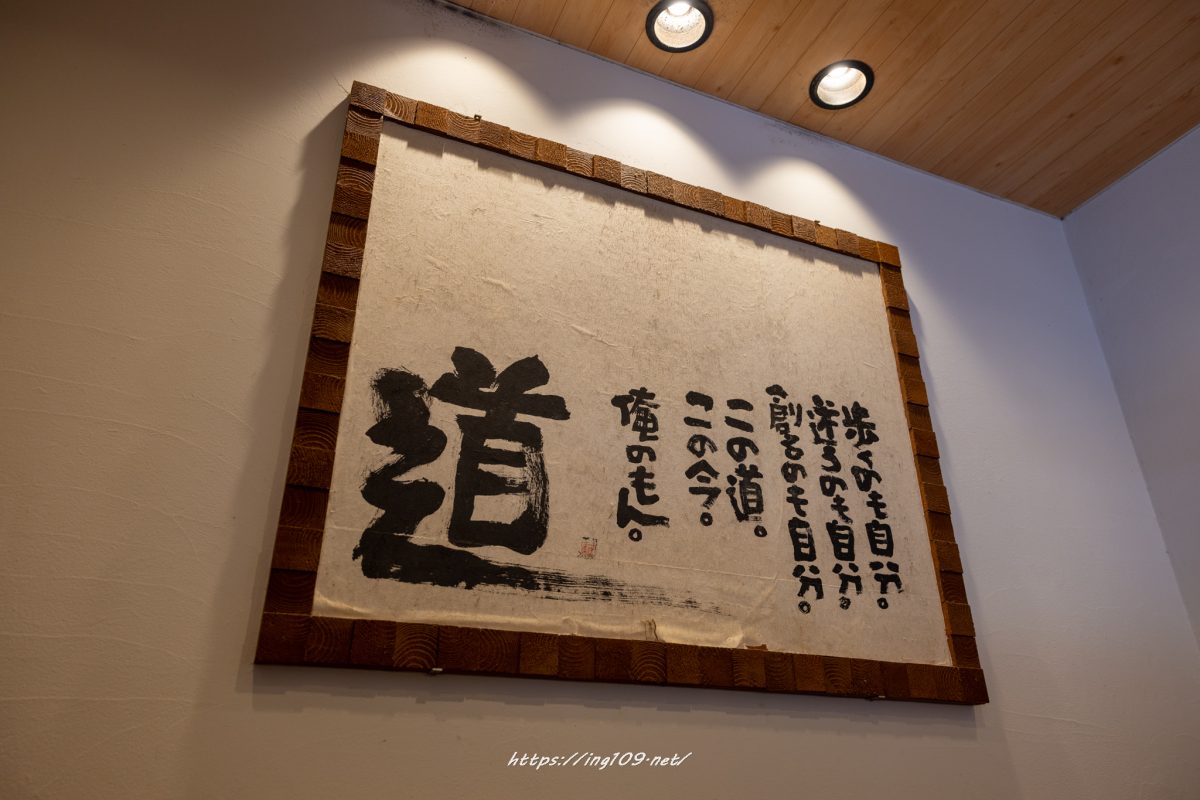 歩くのも自分。
迷うのも自分。
創るのも自分。
この道。
この今。
俺のもん。
道
https://ing109.net/